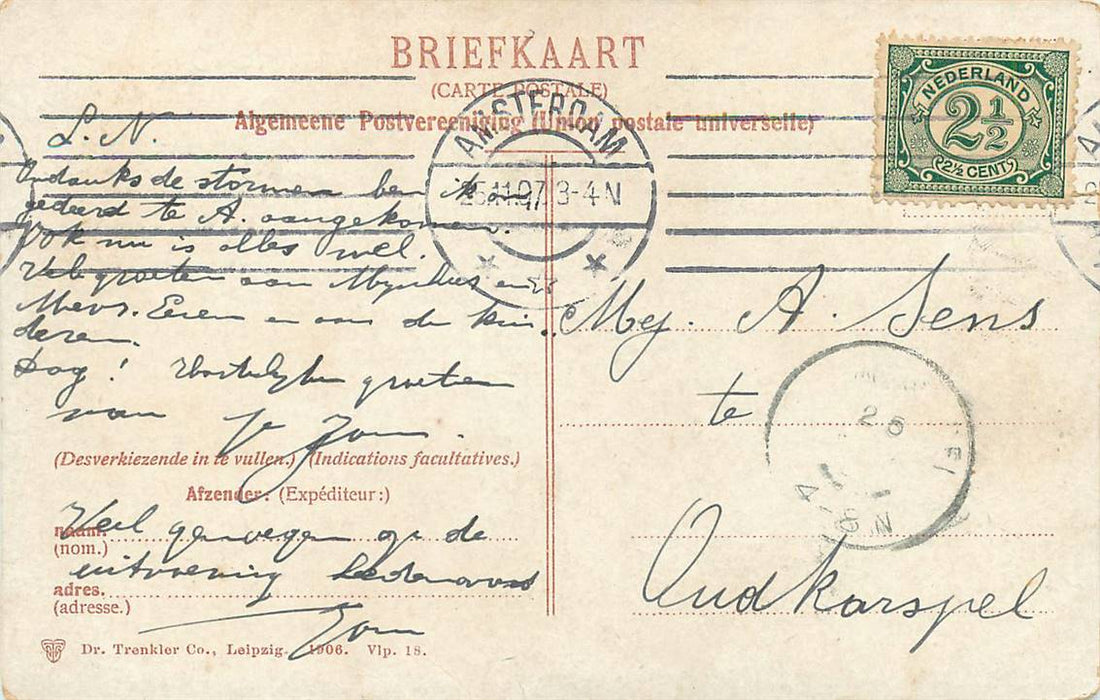 BRIEFKAART
(CARTE POSTALE)
Algemeene Postvereeniging (Union postale universelle)
NEDERLAND
2½
2½ CENT
AMSTERDAM
25.11.07 3-4 N
L. N.
Ondanks de stormen ben ik
gedeerd te A. aangekomen.
Ook nu is alles wel.
Vele groeten aan Mijnheer en
Mevr. Eecen en aan de kin
deren.
Dag! Hartelijke groeten
van Jo
Mej. A. Sens
te
Oudkarspel
25
4-8 N
(Desverkiezende in te vullen.) (Indications facultatives.)
Afzender: (Expéditeur:)
naam.
(nom.)
Veel genoegen op de
uitvoering hedenavond
adres.
(adresse.)
Dr. Trenkler Co., Leipzig. 1906. Vlp. 18.